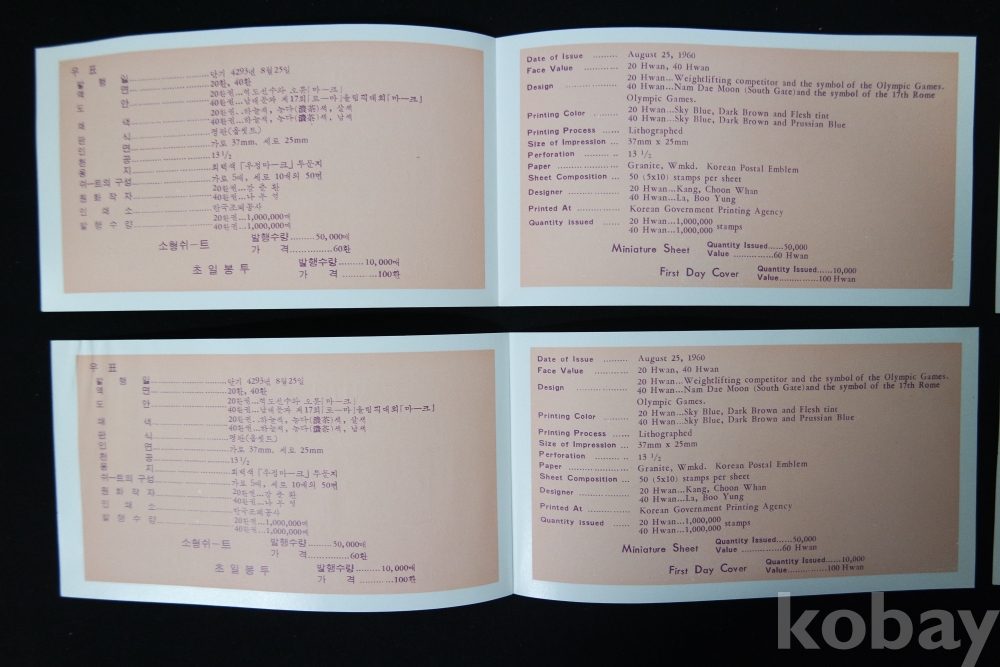 우 표
발 행 일 단기 4293년 8월25일
액 면 20환, 40환
도 안 20환권...역도선수와 오륜「마ー크」
40환권...남대문과 제17회「로ー마」올림픽대회「마ー크」
채 색 20환권...하늘색, 농다(濃茶)색, 살색
40환권...하늘색, 농다(濃茶)색, 남색
판 식 평판(옵셑트)
인 면 가로 37mm. 세로 25mm
천 공 13½
용 지 회백색「우정마ー크」투문지
쉬ー트의구성 가로 5매, 세로 10매의 50면
원 화 작 자 20환권...강 춘 환
40환권...나 부 영
인 쇄 소 한국조폐공사
발 행 수 량 20환권...1,000,000매
40환권...1,000,000매
소형쉬ー트 발행수량.........50,000매
가 격...............60환
초 일 봉 투 발행수량.........10,000매
가 격............100환
Date of Issue ......... August 25, 1960
Face Value ............ 20 Hwan, 40 Hwan
Design ............... 20 Hwan...Weightlifting competitor and the symbol of the Olympic Games.
40 Hwan...Nam Dae Moon (South Gate)and the symbol of the 17th Rome
Olympic Games.
Printing Color ......... 20 Hwan...Sky Blue, Dark Brown and Flesh tint
40 Hwan...Sky Blue, Dark Brown and Prussian Blue
Printing Process ...... Lithographed
Size of Impression ... 37mm x 25mm
Perforation ......... .. 13 ½
Paper .................. Granite, Wmkd. Korean Postal Emblem
Sheet Composition ... 50 (5x10) stamps per sheet
Designer ............... 20 Hwan...Kang, Choon Whan
40 Hwan...La, Boo Yung
Printed At ............ Korean Government Printing Agency
Quantity Issued ...... 20 Hwan...1,000,000
40 Hwan...1,000,000 stamps
Miniature Sheet Quantity Issued......50,000
Value ...............60 Hwan
First Day Cover Quantity Issued......10,000
Value...............100 Hwan
우 표
발 행 일 단기 4293년 8월25일
액 면 20환, 40환
도 안 20환권...역도선수와 오륜「마ー크」
40환권...남대문과 제17회「로ー마」올림픽대회「마ー크」
채 색 20환권...하늘색, 농다(濃茶)색, 살색
40환권...하늘색, 농다(濃茶)색, 남색
판 식 평판(옵셑트)
인 면 가로 37mm. 세로 25mm
천 공 13½
용 지 회백색「우정마ー크」투문지
쉬ー트의구성 가로 5매, 세로 10매의 50면
원 화 작 자 20환권...강 춘 환
40환권...나 부 영
인 쇄 소 한국조폐공사
발 행 수 량 20환권...1,000,000매
40환권...1,000,000매
소형쉬ー트 발행수량.........50,000매
가 격...............60환
초 일 봉 투 발행수량.........10,000매
가 격............100환
Date of Issue ......... August 25, 1960
Face Value ............ 20 Hwan, 40 Hwan
Design ............... 20 Hwan...Weightlifting competitor and the symbol of the Olympic Games.
40 Hwan...Nam Dae Moon (South Gate)and the symbol of the 17th Rome
Olympic Games.
Printing Color ......... 20 Hwan...Sky Blue, Dark Brown and Flesh tint
40 Hwan...Sky Blue, Dark Brown and Prussian Blue
Printing Process ...... Lithographed
Size of Impression ... 37mm x 25mm
Perforation ......... .. 13 ½
Paper .................. Granite, Wmkd. Korean Postal Emblem
Sheet Composition ... 50 (5x10) stamps per sheet
Designer ............... 20 Hwan...Kang, Choon Whan
40 Hwan...La, Boo Yung
Printed At ............ Korean Government Printing Agency
Quantity Issued ...... 20 Hwan...1,000,000
40 Hwan...1,000,000 stamps
Miniature Sheet Quantity Issued......50,000
Value ...............60 Hwan
First Day Cover Quantity Issued......10,000
Value...............100 Hwan
kobay